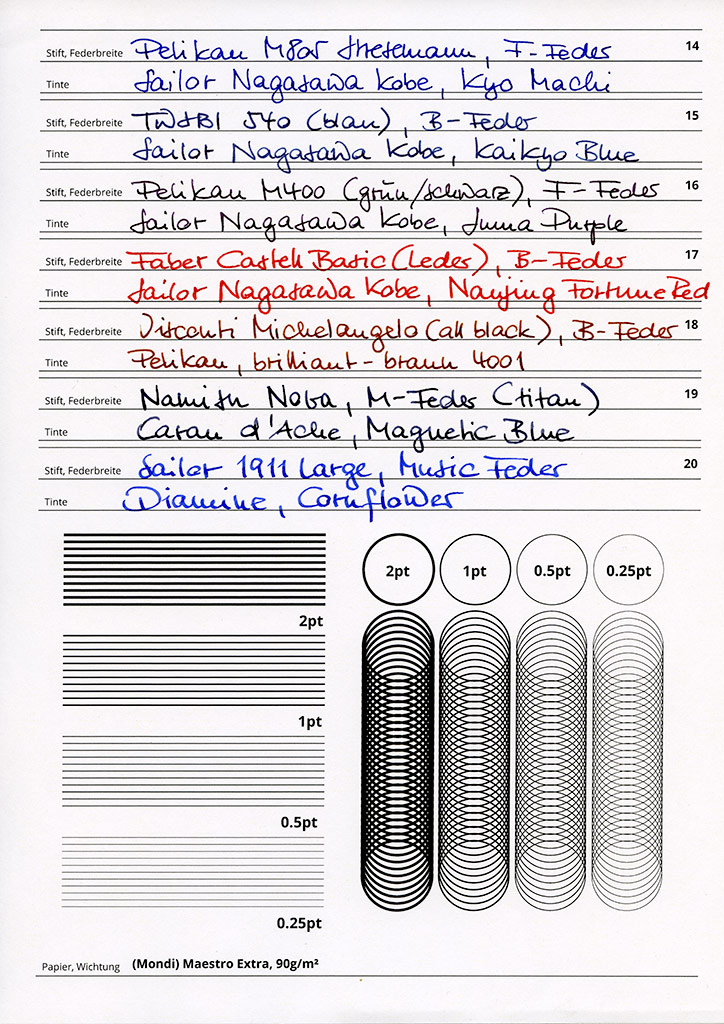 Stift, Federbreite Pelikan M805 Stresemann, F-Feder 14
Tinte Sailor Nagasawa Kobe, Kyo Machi
Stift, Federbreite TWSBI 540 (blau), B-Feder 15
Tinte Sailor Nagasawa Kobe, Kaikyo Blue
Stift, Federbreite Pelikan M400 (grün/schwarz), F-Feder 16
Tinte Sailor Nagasawa Kobe, Suma Purple
Stift, Federbreite Faber Castell Basic (Leder), B-Feder 17
Tinte Sailor Nagasawa Kobe, Nanjing Fortune Red
Stift, Federbreite Visconti Michelangelo (all black), B-Feder 18
Tinte Pelikan, brilliant-braun 4001
Stift, Federbreite Namiki Nova, M-Feder (titan) 19
Tinte Caran d'Ache, Magnetic Blue
Stift, Federbreite Sailor 1911 Large, Music Feder 20
Tinte Diamine, Cornflower
2pt 1pt 0.5pt 0.25pt
2pt
1pt
0.5pt
0.25pt
Papier, Wichtung (Mondi) Maestro Extra, 90g/m²